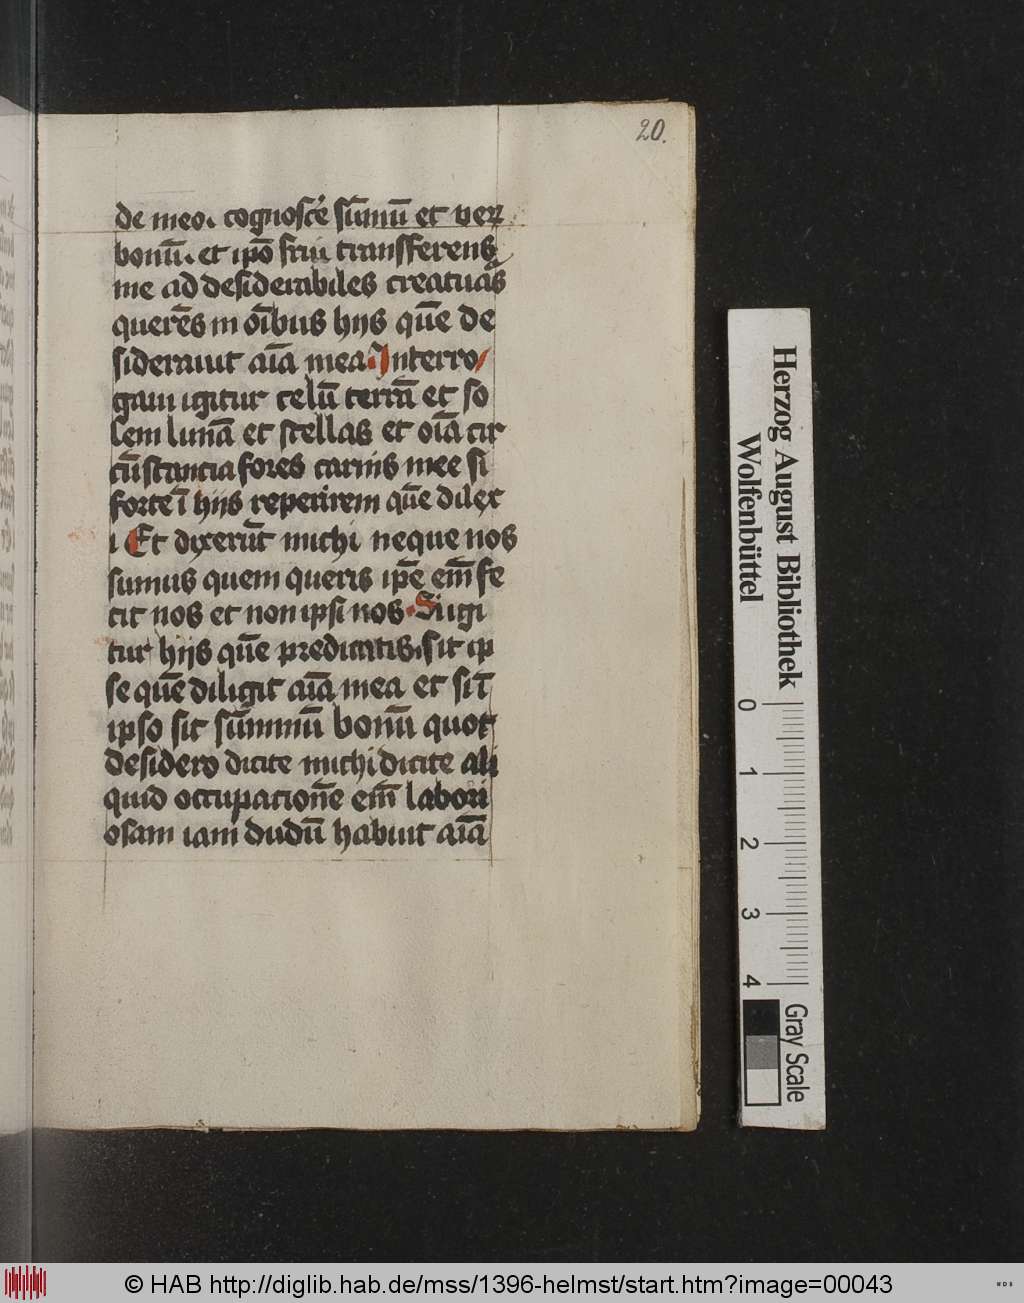 20.
de meo. cognosc̄e sūmū et veꝝ
bonū. et ip̄o frui transfferens
me ad desiderabiles creatuᷓs
querēs in oībus hijs que̅ de
siderauit aīa mea Interro/
gaui igitur celū terrā et so
lem lunā et stellas et oīa cir
cūstancia fores carnis mee si
forte ī hijs reperirem que̅ dilex
i Et dixerūt michi neque nos
sumus quem queris ip̄e em̄ fe
cit nos et non ipsi nos. Si igi
tur hijs que̅ predicatis. sit ip
se que̅ diligit aīa mea et si ī
ipso sit sūmmū bonū quot
desidero dicite michi dicite ali
quid occupacione̅ em̄ labori
osam iam dudū habuit aīa
Herzog August Bibliothek
Wolfenbüttel
0 1 2 3 4
Gray Scale
© HAB http://diglib.hab.de/mss/1396-helmst/start.htm?image=00043
WDB